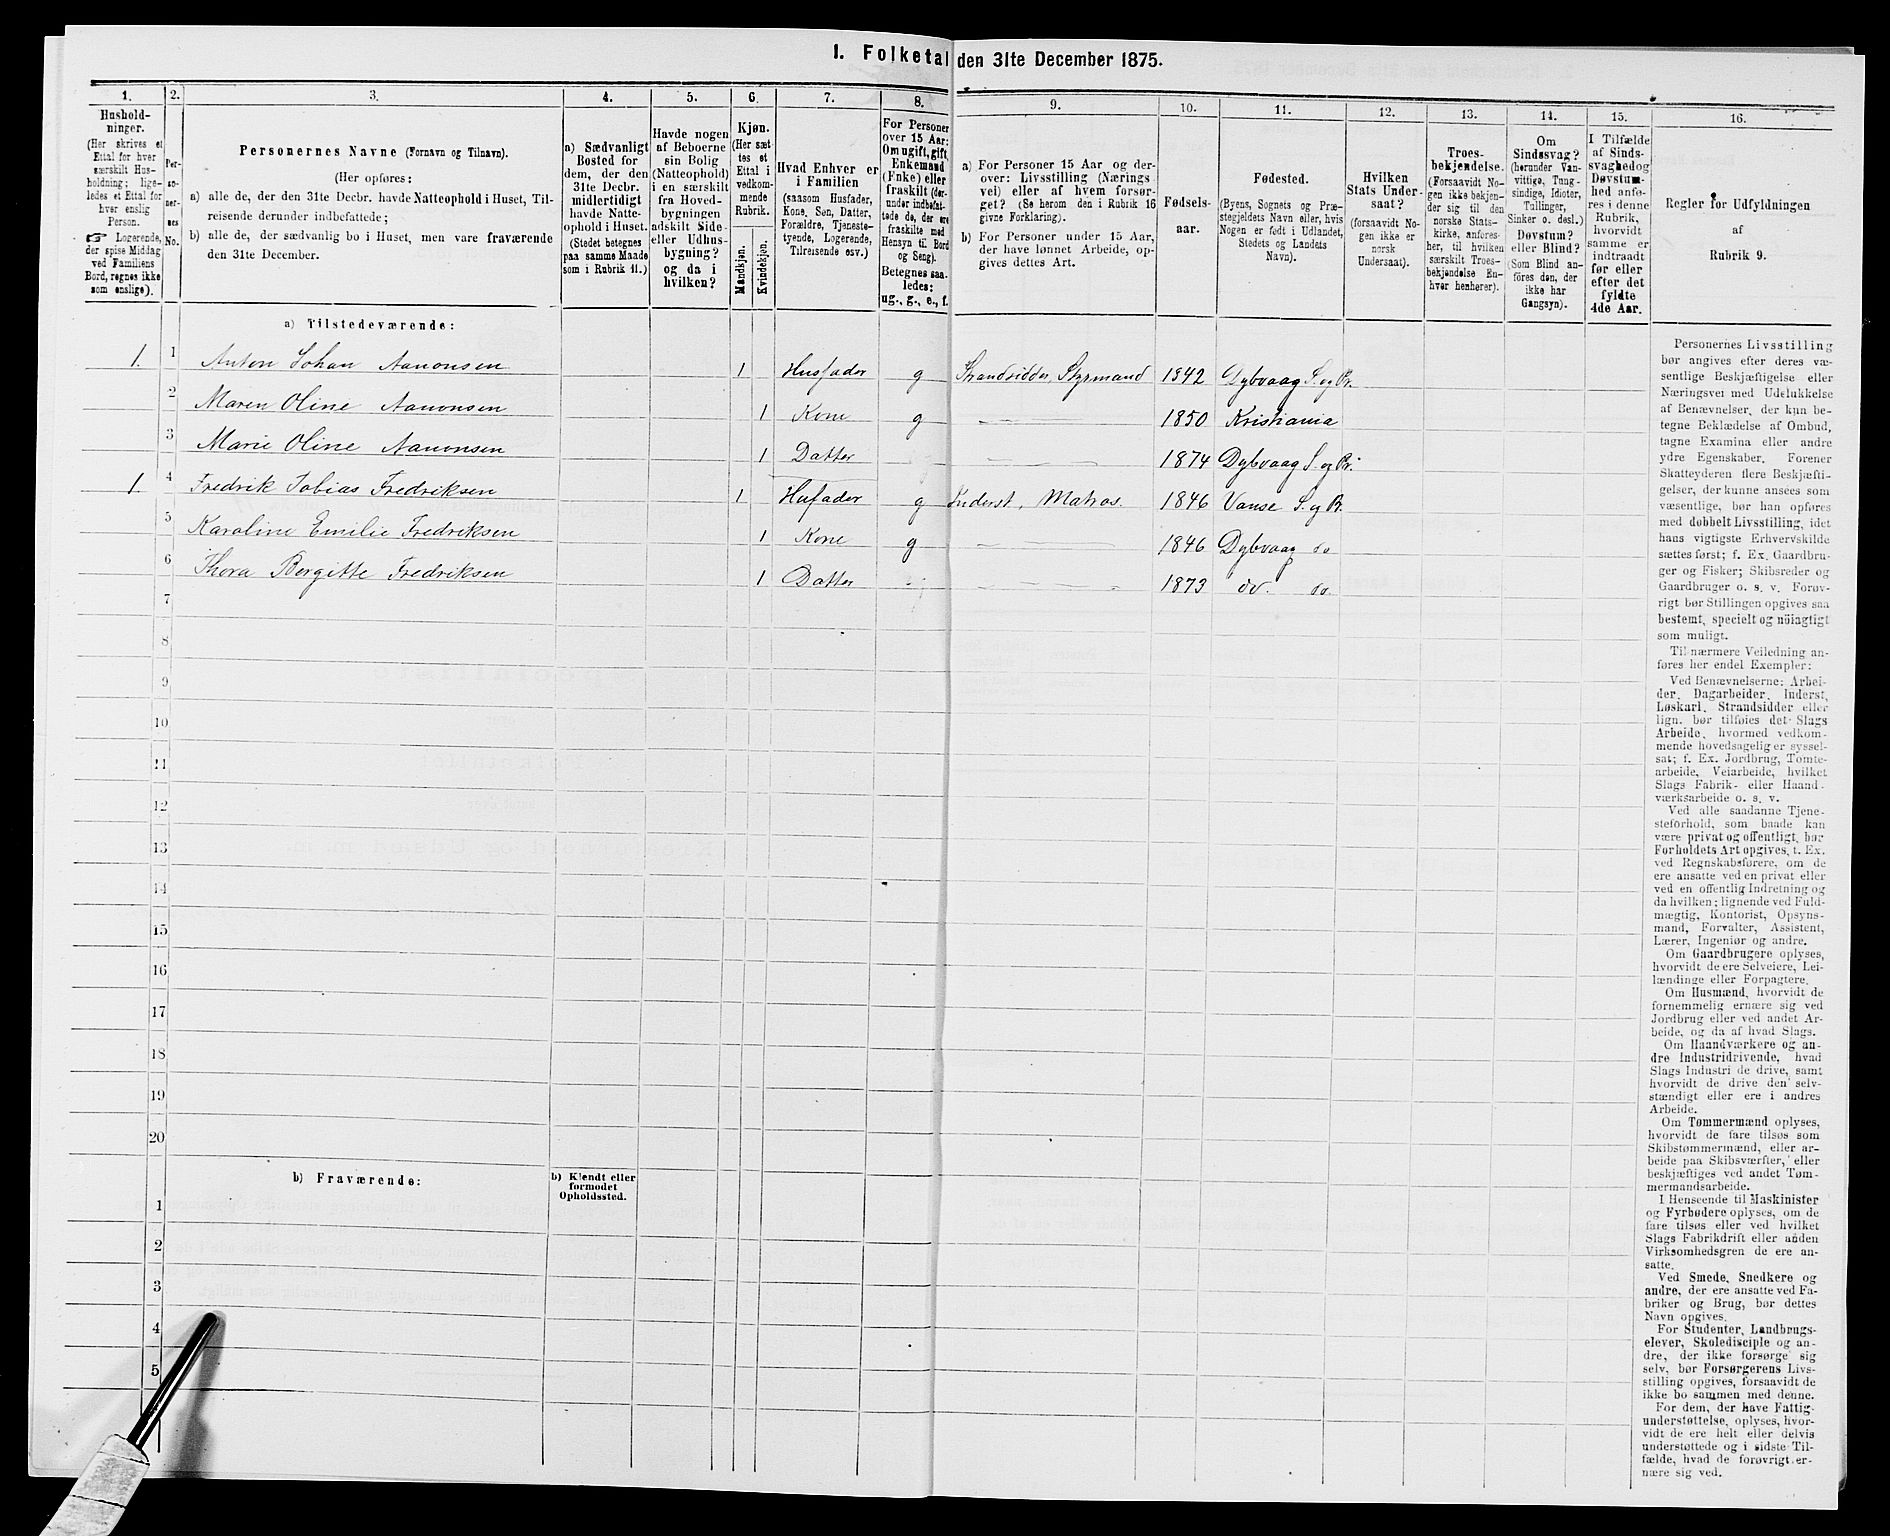 I. Folketal den 31te December 1875.
1. 2. 3. 4. 5. 6. 7. 8. 9. 10. 11. 12. 13. 14. 15. 16.
Hushold-
ninger.
(Her skrives et
Ettal for hver
særskilt Hus-
holdning; lige-
ledes et Ettal for
hver enslig
Person.
☞ Logerende,
der spise Middag
ved Familiens
Bord, regnes ikke
som enslige).
Per-
so-
ner-
nes
No.
Personernes Navne (Fornavn og Tilnavn).
(Her opføres:
a) alle de, der den 31te Decbr. havde Natteophold i Huset, Til-
reisende derunder indbefattede;
b) alle de, der sædvanlig bo i Huset, men vare fraværende
den 31te December.
a) Sædvanligt
Bosted for
dem, der den
31te Decbr.
midlertidigt
havde Natte-
ophold i Huset.
(Stedet betegnes
paa samme Maade
som i Rubrik 11.)
Havde nogen
af Beboerne
sin Bolig
(Natteophold)
i en særskilt
fra Hoved-
bygningen
adskilt Side-
eller Udhus-
bygning?
og da i
hvilken?
Kjøn.
(Her sæt-
tes et
Ettal i
vedkom-
mende
Rubrik.
Mandkjøn.
Kvindekjøn.
Hvad Enhver er
i Familien
(saasom Husfader,
Kone, Søn, Datter,
Forældre, Tjeneste-
tyende, Logerende,
Tilreisende osv.)
For Personer
over 15 Aar:
Om ugift, gift,
Enkemand
(Enke) eller
fraskilt (der-
under indbefat-
tede de, der ere
fraskilte med
Hensyn til Bord
og Seng).
Betegnes saa-
ledes:
ug., g., e., f.
a) For Personer 15 Aar og der-
over: Livsstilling (Nærings-
vei) eller af hvem forsør-
get? (Se herom den i Rubrik 16
givne Forklaring).
b) For Personer under 15 Aar,
der have lønnet Arbeide, op-
gives dettes Art.
Fødsels-
aar.
Fødested.
(Byens, Sognets og Præ-
stegjeldets Navn eller, hvis
Nogen er født i Udlandet,
Stedets og Landets
Navn).
Hvilken
Stats Under-
saat?
(forsaavidt No-
gen ikke er
norsk
Undersaat).
Troes-
bekjendelse.
(Forsaavidt No-
gen ikke bekjen-
der sig til den
norske Stats-
kirke, anføres
her, til hvilken
særskilt Troes-
bekjendelse En-
hver henhører).
Om
Sindssvag?
(herunder Van-
vittige, Tung-
sindige, Idioter,
Tullinger,
Sinker o. desl.)
Døvstum?
eller Blind?
(Som Blind an-
føres den, der
ikke har
Gangsyn).
I Tilfælde
af Sinds-
svaghed og
Døvstum-
hed anfø-
res i denne
Rubrik,
hvorvidt
samme er
indtraadt
før eller
efter det
fyldte
4de Aar.
Regler for Udfyldningen
af
Rubrik 9.
a) Tilstedeværende:
1. 1 Anton Johan Aanonsen 1 Husfader g Strandsidder, Styrmand 1842 Dybvaag S. og Pr.
2 Maren Oline Aanonsen 1 Kone g 1850 Kristiania
3 Marie Oline Aanonsen 1 Datter 1874 Dybvaag S. og Pr.
1. 4 Fredrik Tobias Fredriksen 1 Husfader g Inderst, Matros. 1846 Vanse S. og Pr.
5 Karoline Emilie Fredriksen 1 Kone g 1846 Dybvaag do
6 Thora Bergitte Fredriksen 1 Datter 1873 do. do.
7
8
9
10
11
12
13
14
15
16
17
18
19
20
b) Fraværende:
b) Kjendt eller
formodet
Opholdssted.
1
2
3
4
5
Personernes Livsstilling
bør angives efter deres væ-
sentlige Beskjæftigelse eller
Næringsvei med Udelukkelse
af Benævnelser, der kun be-
tegne Beklædelse af Ombud,
tagne Examina eller andre
ydre Egenskaber. Forener
Skatteyderen flere Beskjæfti-
gelser, der kunne ansees som
væsentlige, bør han opføres
med dobbelt Livsstilling, idet
hans vigtigste Erhvervskilde
sættes først; f. Ex. Gaardbru-
ger og Fisker; Skibsreder og
Gaardbruger o. s. v. Forøv-
rigt bør Stillingen opgives saa
bestemt, specielt og nöiagtigt
som muligt.
Til nærmere Veiledning an-
føres her endel Exempler:
Ved Benævnelserne: Arbei-
der, Dagarbeider, Inderst,
Løskarl, Strandsidder eller
lign. bør tilføies det Slags
Arbeide, hvormed vedkom-
mende hovedsagelig er syssel-
sat; f. Ex. Jordbrug, Tomte-
arbeide, Veiarbeide, hvilket
Slags Fabrik- eller Haand-
værksarbeide o. s. v.
Ved alle saadanne Tjene-
steforhold, som baade kan
være privat og offentligt, bør
Forholdets Art opgives, f. Ex.
ved Regnskabsførere, om de
ere ansatte ved en privat eller
ved en offentlig Indretning og
da hvilken; lignende ved Fuld-
mægtig, Kontorist, Opsyns-
mand, Forvalter, Assistent,
Lærer, Ingeniør og andre.
Om Gaardbrugere oplyses,
hvorvidt de ere Selveiere, Lei-
lændinge eller Forpagtere.
Om Husmænd, hvorvidt de
fornemmelig ernære sig ved
Jordbrug eller ved andet Ar-
beide, og da af hvad Slags.
Om Haandværkere og an-
dre Industridrivende, hvad
Slags Industri de drive, samt
hvorvidt de drive den selv-
stændigt eller ere i andres
Arbeide.
Om Tømmermænd oplyses,
hvorvidt de fare tilsøs som
Skibstømmermænd, eller ar-
beide paa Skibsværfter, eller
beskjæftiges ved andet Tøm-
mermandsarbeide.
I Henseende til Maskinister
og Fyrbødere oplyses, om de
fare tilsøs eller ved hvilket
Slags Fabrikdrift eller anden
Virksomhedsgren de ere an-
satte.
Ved Smede, Snedkere og
andre, der ere ansatte ved Fa-
briker og Brug, bør dettes
Navn opgives.
For Studenter, Landbrugs-
elever, Skoledisciple og an-
dre, der ikke forsørge sig
selv, bør Forsørgerens Livs-
stilling opgives, forsaavidt de
ikke bo sammen med denne.
For dem, der have Fattig-
understøttelse, oplyses, hvor-
vidt de ere helt eller delvis
understøttede og i sidste Til-
fælde, hvad de forøvrigt er-
nære sig ved.